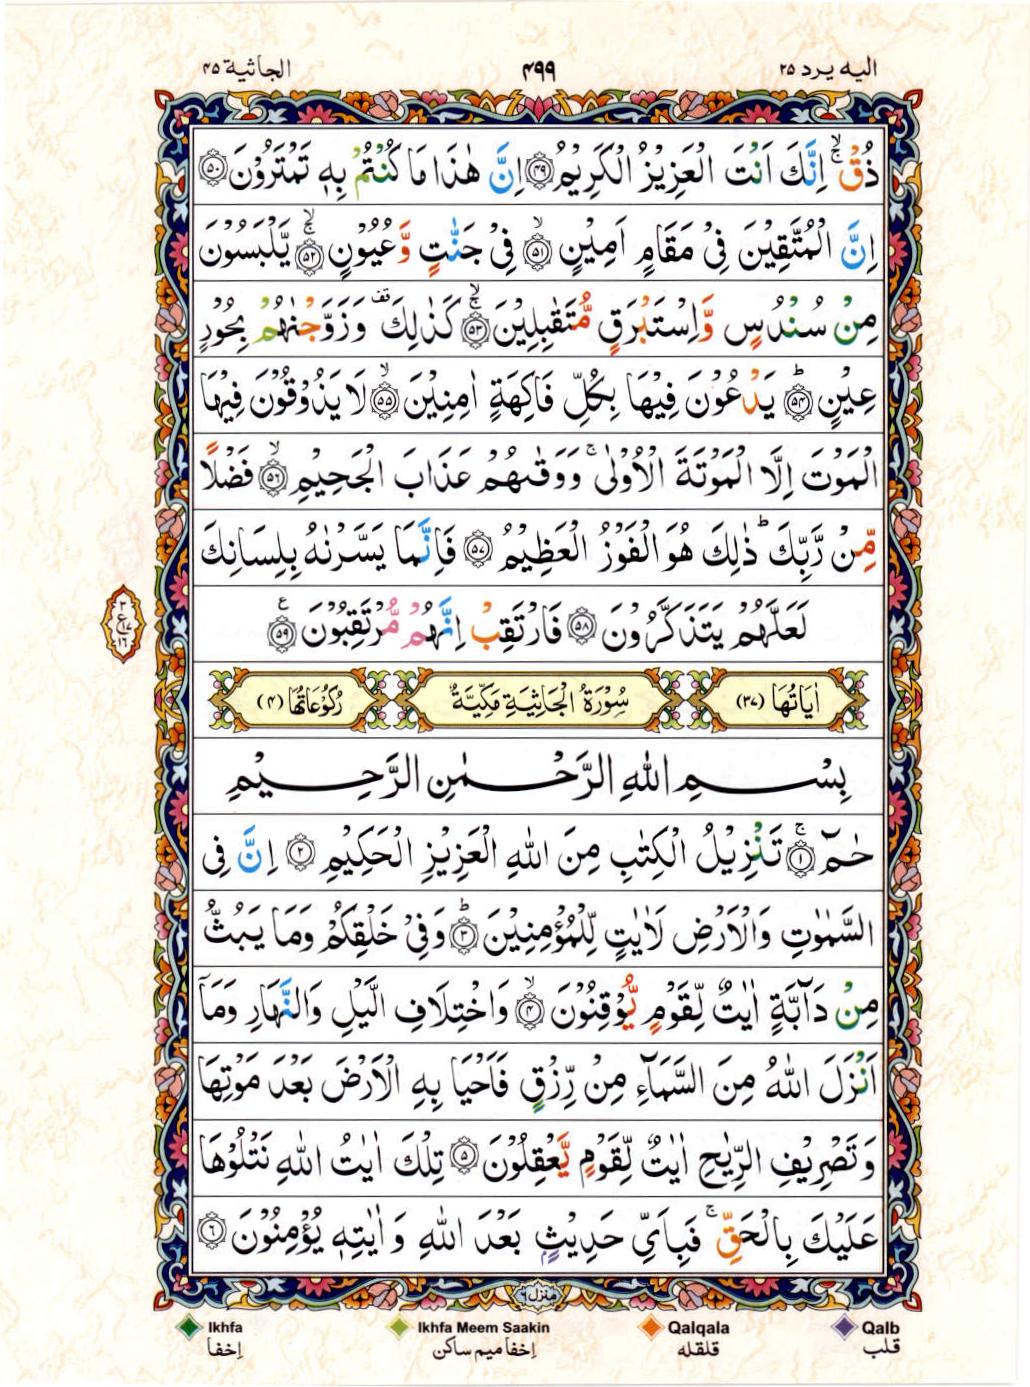 الجاثية ٤٥ ٤٩٩ اليه يرد ٢٥
ذُقْ ۙۚ اِنَّكَ اَنْتَ الْعَزِيْزُ الْكَرِيْمُ ﴿٤٩﴾ اِنَّ هٰذَا مَا كُنْتُمْ بِهٖ تَمْتَرُوْنَ ﴿٥٠﴾
اِنَّ الْمُتَّقِيْنَ فِيْ مَقَامٍ اَمِيْنٍ ۙ﴿٥١﴾ فِيْ جَنّٰتٍ وَّعُيُوْنٍ ۙۚ﴿٥٢﴾ يَّلْبَسُوْنَ
مِنْ سُنْدُسٍ وَّاِسْتَبْرَقٍ مُّتَقٰبِلِيْنَ ۙۚ﴿٥٣﴾ كَذٰلِكَ ۫ وَزَوَّجْنٰهُمْ بِحُوْرٍ
عِيْنٍ ؕ﴿٥٤﴾ يَدْعُوْنَ فِيْهَا بِكُلِّ فَاكِهَةٍ اٰمِنِيْنَ ۙ﴿٥٥﴾ لَا يَذُوْقُوْنَ فِيْهَا
الْمَوْتَ اِلَّا الْمَوْتَةَ الْاُوْلٰى ۚ وَوَقٰىهُمْ عَذَابَ الْجَحِيْمِ ۙ﴿٥٦﴾ فَضْلًا
مِّنْ رَّبِّكَ ؕ ذٰلِكَ هُوَ الْفَوْزُ الْعَظِيْمُ ﴿٥٧﴾ فَاِنَّمَا يَسَّرْنٰهُ بِلِسَانِكَ
لَعَلَّهُمْ يَتَذَكَّرُوْنَ ﴿٥٨﴾ فَارْتَقِبْ اِنَّهُمْ مُّرْتَقِبُوْنَ ﴿٥٩﴾ ع
٣ ع ١٧ ١٦
اٰيَاتُهَا (٣٧) سُوْرَةُ الْجَاثِيَةِ مَكِّيَّةٌ رُكُوْعَاتُهَا (٤)
بِسْمِ اللّٰهِ الرَّحْمٰنِ الرَّحِيْمِ
حٰمٓ ۚ﴿١﴾ تَنْزِيْلُ الْكِتٰبِ مِنَ اللّٰهِ الْعَزِيْزِ الْحَكِيْمِ ﴿٢﴾ اِنَّ فِى
السَّمٰوٰتِ وَالْاَرْضِ لَاٰيٰتٍ لِّلْمُؤْمِنِيْنَ ؕ﴿٣﴾ وَفِيْ خَلْقِكُمْ وَمَا يَبُثُّ
مِنْ دَآبَّةٍ اٰيٰتٌ لِّقَوْمٍ يُّوْقِنُوْنَ ۙ﴿٤﴾ وَاخْتِلَافِ الَّيْلِ وَالنَّهَارِ وَمَآ
اَنْزَلَ اللّٰهُ مِنَ السَّمَآءِ مِنْ رِّزْقٍ فَاَحْيَا بِهِ الْاَرْضَ بَعْدَ مَوْتِهَا
وَتَصْرِيْفِ الرِّيٰحِ اٰيٰتٌ لِّقَوْمٍ يَّعْقِلُوْنَ ﴿٥﴾ تِلْكَ اٰيٰتُ اللّٰهِ نَتْلُوْهَا
عَلَيْكَ بِالْحَقِّ ۚ فَبِاَيِّ حَدِيْثٍۭ بَعْدَ اللّٰهِ وَاٰيٰتِهٖ يُؤْمِنُوْنَ ﴿٦﴾
منزل ٦
Ikhfa Ikhfa Meem Saakin Qalqala Qalb
اِخفا اِخفا میم ساکن قلقله قلب